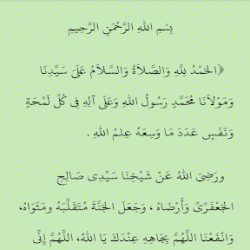 بِسْمِ اللهِ الرَّحْمَنِ الرَّحِيمِ
﴿الحَمْدُ لِلَّهِ وَالصَّلاَةُ وَالسَّلاَمُ عَلَىَ سَيِّدِنَا
وَمَوْلاَنَا مُحَمَّدٍ رَسُولُ اللهِ وَعَلَى آلِهِ فِى كُلِّ لَمْحَةٍ
وَنَفَسٍ عَدَدَ مَا وَسِعَهُ عِلمُ اللهِ .
ورَضِىَ اللهُ عَنْ شَيْخِنَا سَيِّدِى صَالِحِ
الجَعْفَرِىِّ وَأَرْضَاهُ ، وَجَعَلَ الجَنَّةَ مُتَقَلَّبَهُ ومَثوَاهُ،
وَانْفَعْنَا اللَّهُمَّ بِجَاهِهِ عِنْدَكَ يَا اللهُ، اللَّهُمَّ إِنِّى